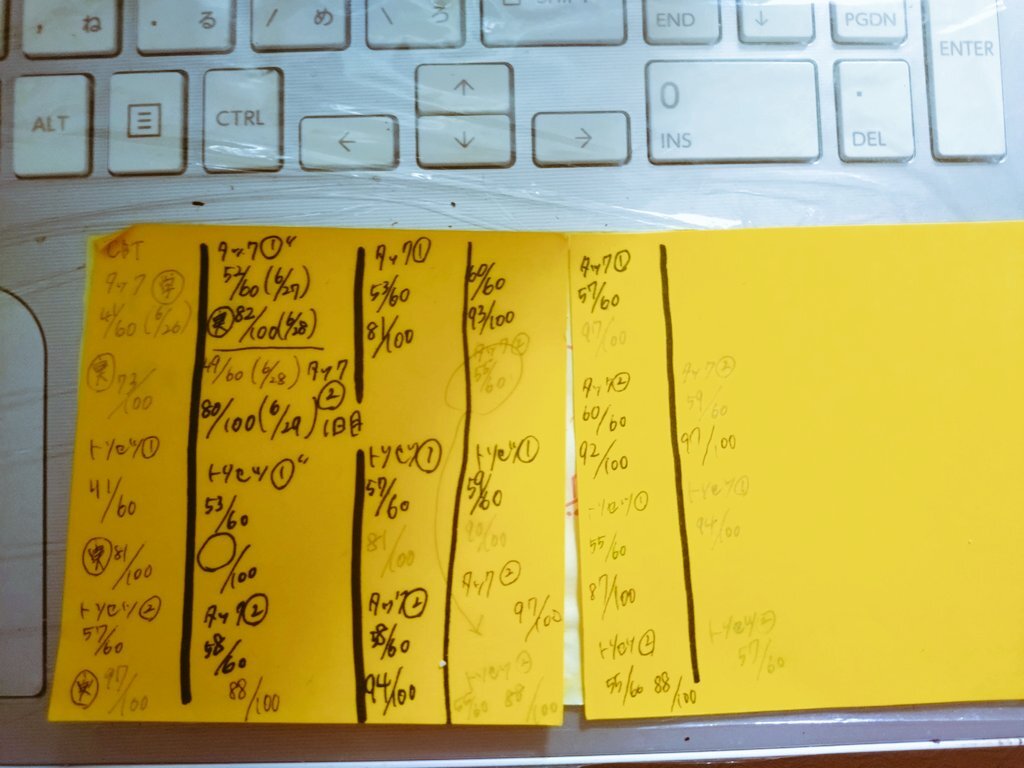 , ね
. る
/ め
\ ろ
SHIFT
END
↓
PGDN
ENTER
ALT
CTRL
←
↑
↓
→
0
INS
.
DEL
CBT
タック 単
41/60 (6/26)
実 73/100
トリセツ①
41/60
実 81/100
トリセツ②
57/60
実 97/100
タック①"
52/60 (6/27)
実 82/100 (6/28)
49/60 (6/28) タック②
80/100 (6/29) 1日目
トリセツ①"
53/60
/100
タック②
58/60
88/100
タック①
53/60
81/100
トリセツ①
57/60
81/100
タック②
58/60
94/100
60/60
93/100
タック②
55/60
トリセツ①
59/60
90/100
タック②
97/100
トリセツ②
55/60 88/100
タック①
57/60
97/100
タック②
60/60
92/100
トリセツ①
55/60
87/100
トリセツ②
55/60 88/100
タック②
59/60
97/100
トリセツ①
94/100
トリセツ②
57/60